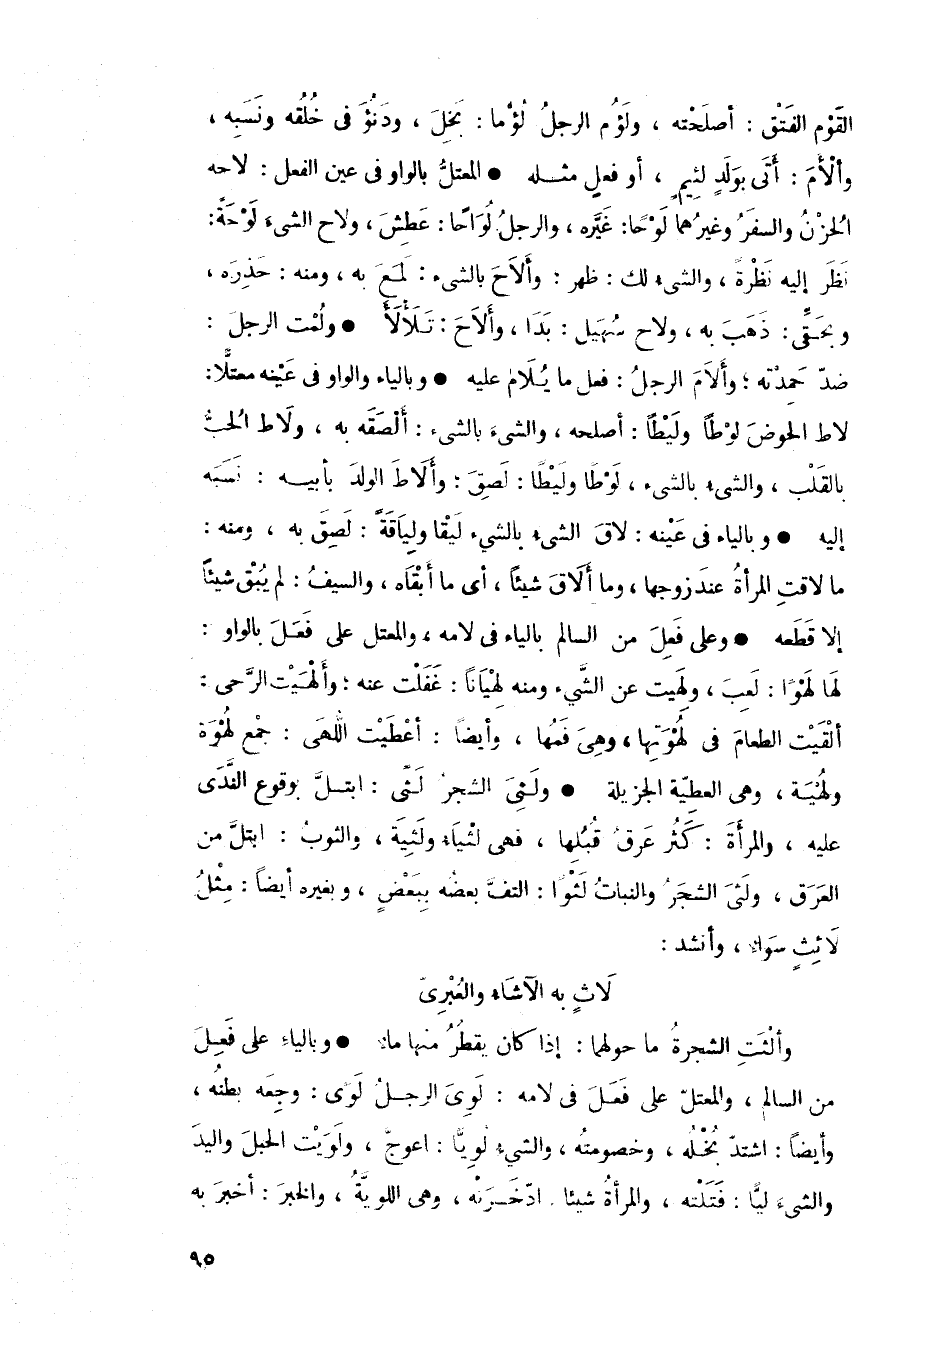 القَوْم الفَتْق : أصلَحْته ، ولَؤُم الرجلُ لُؤْما : بَخِلَ ، ودَنُؤَ فى خُلُقه ونَسَبِه ،
وألْأَمَ : أَتَى بوَلَدٍ لئِيمٍ ، أو فعلٍ مثـله ● المعتلُّ بالواو فى عين الفعل : لاحه
الحزْنُ والسفَرُ وغيرُهما لَوْحًا : غَيَّره ، والرجلُ لُوَاحًا : عَطِشَ ، ولاح الشىءَ لَوْحَةً :
نَظَر إليه نَظْرةً ، والشىءُ لك : ظهر : وأَلاَحَ بالشىء : لَمَعَ به ، ومنه : حَذِرَه ،
وبحَقِّى : ذَهَبَ به ، ولاح سُهَيل : بَدَا ، وأَلاَحَ : تَـلَأْلَأَ ● ولُمْت الرجلَ :
ضدّ حَمِدْته ؛ وأَلاَمَ الرجلُ : فعل ما يُـلَامُ عليه ● وبالياء والواو فى عَيْنه معتلًّا :
لاط الحوضَ لوْطاً ولَيْطًا : أصلحه ، والشىءَ بالشىء : أَلْصَقَه به ، ولَاط الحبُّ
بالقَلْب ، والشىءُ بالشىء ، لَوْطًا ولَيْطًا : لَصِقَ : وأَلَاطَ الولدَ بأبيـه : نَسَبَه
إليه ● وبالياء فى عَيْنه : لاقَ الشىءُ بالشىءِ لَيْقا ولِيَاقَةً : لَصِقَ به ، ومنه :
ما لاقتِ المرأةُ عندَ زوجها ، وما أَلَاقَ شيئاً ، أى ما أَبْقَاه ، والسيفُ : لم يُبْقِ شيئاً
إلا قَطَعه ● وعلى فَعِلَ من السالم بالياء فى لامه ، والمعتل على فَعَـلَ بالواو :
لَهَا لَهْوًا : لَعِبَ ، ولَهِيت عن الشَّىء ومنه لِهْيَاناً : غَفَلْت عنه ؛ وأَلْهَيْت الرَّحى :
ألْقَيْت الطعامَ فى لُهْوَتِها ، وهِىَ فَمُها ، وأيضاً : أعْطَيْت اللُّهَى : جمْع لُهْوَة
ولُهْيَـة ، وهى العطيّة الجزيلة ● ولَـثِىَ الشجرُ لَـثًى : ابتـلَّ بوقوع النَّدَى
عليه ، والمرأَةَ : كَثُر عَرقُ قُبُلِها ، فهى لَثْيَاءُ ولَثِيَة ، والثوبُ : ابتلَّ من
العَرَق ، ولَثَى الشجَرُ والنباتُ لَثْوًا : التفَّ بعضُه بِبَعْضٍ ، وبغيره أيضاً : مِثْلُ
لَائِثٍ سَواء ، وأنشد :
لَاثٍ به الآشَاءُ والعُبْرِىّ
وألْثَتِ الشجرةُ ما حولها : إذا كان يقطُرُ منها ماء ● وبالياء على فَعِـلَ
من السالم ، والمعتلّ على فَعَـلَ فى لامه : لَوِىَ الرجـلُ لَوًى : وجِعَه بطنُه ،
وأيضاً : اشتدّ بُخْلُه ، وخصومتُه ، والشىءُ لُوِيًّا : اعوجَّ ، ولَوَيْت الحبلَ واليدَ
والشىءَ ليًّا : فَتَلْته ، والمرأةُ شيئا . ادّخَـرَتْه ، وهى اللوِيَّةُ ، والخبرَ : أخبرَ به
٩٥